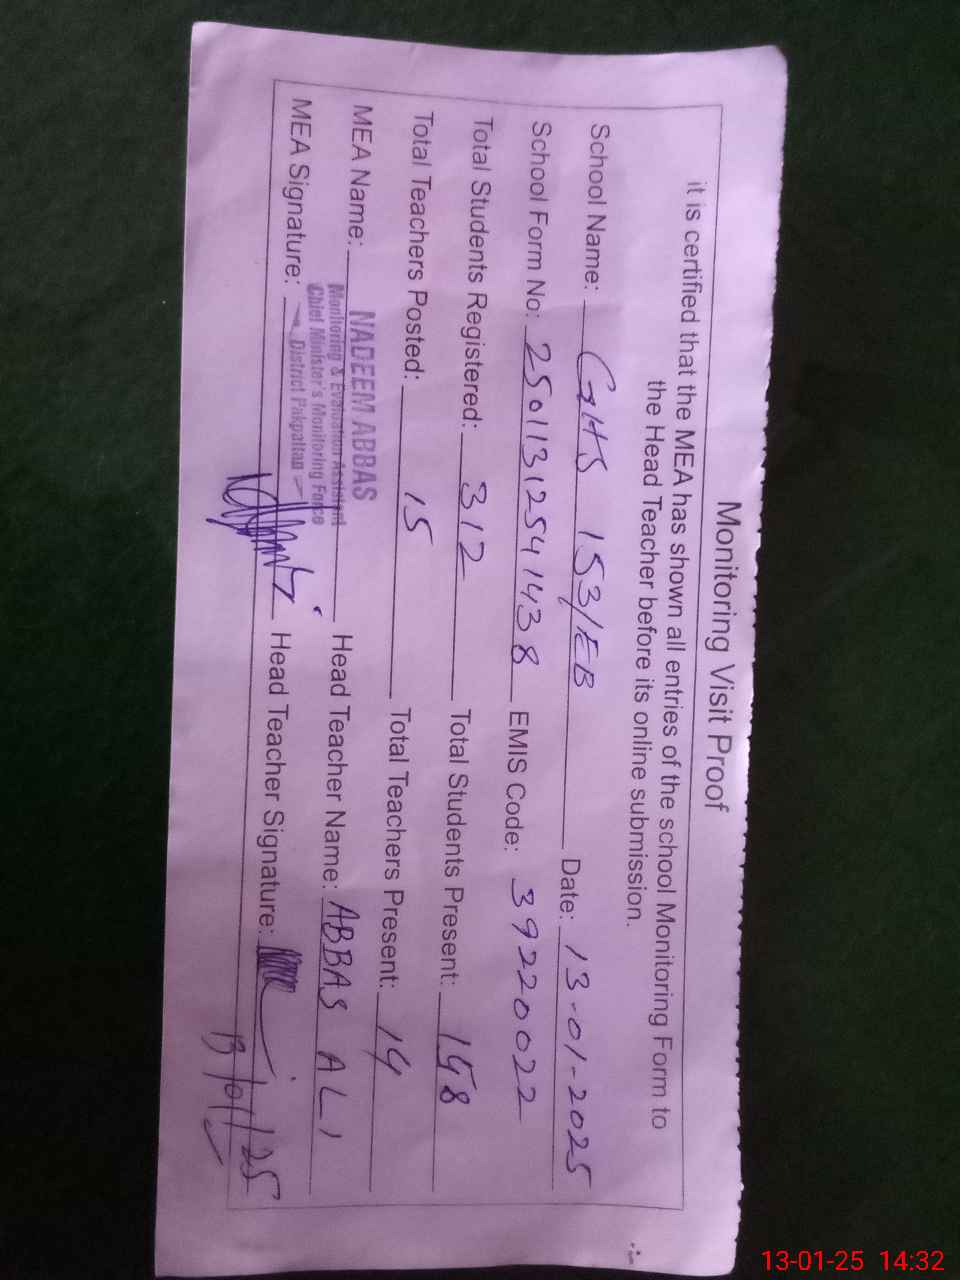 Monitoring Visit Proof
it is certified that the MEA has shown all entries of the school Monitoring Form to
the Head Teacher before its online submission.
School Name: GHS 153/EB Date: 13-01-2025
School Form No: 25011312541438 EMIS Code: 39220022
Total Students Registered: 312 Total Students Present:
Total Teachers Posted: 15 Total Teachers Present: 14
MEA Name: NADEEM ABBAS Head Teacher Name: ABBAS ALI
Monitoring & Evaluation Assistant
Chief Minister's Monitoring Force
District Pakpattan
MEA Signature: Head Teacher Signature:
13/01/25
13-01-25 14:32